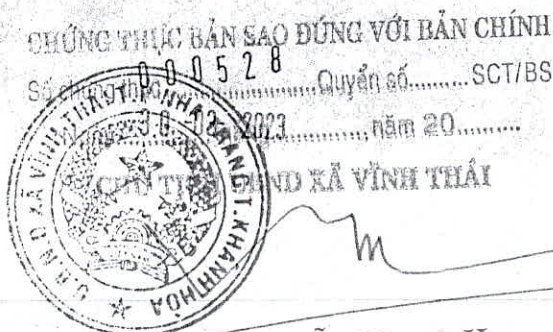 CHỨNG THỰC BẢN SAO ĐÚNG VỚI BẢN CHÍNH
Số chứng thực 000528 Quyển số.......... SCT/BS
30 02 2023 năm 20..........
UBND XÃ VĨNH THÁI
U.B.N.D XÃ VĨNH THÁI T.P NHA TRANG T. KHÁNH HÒA